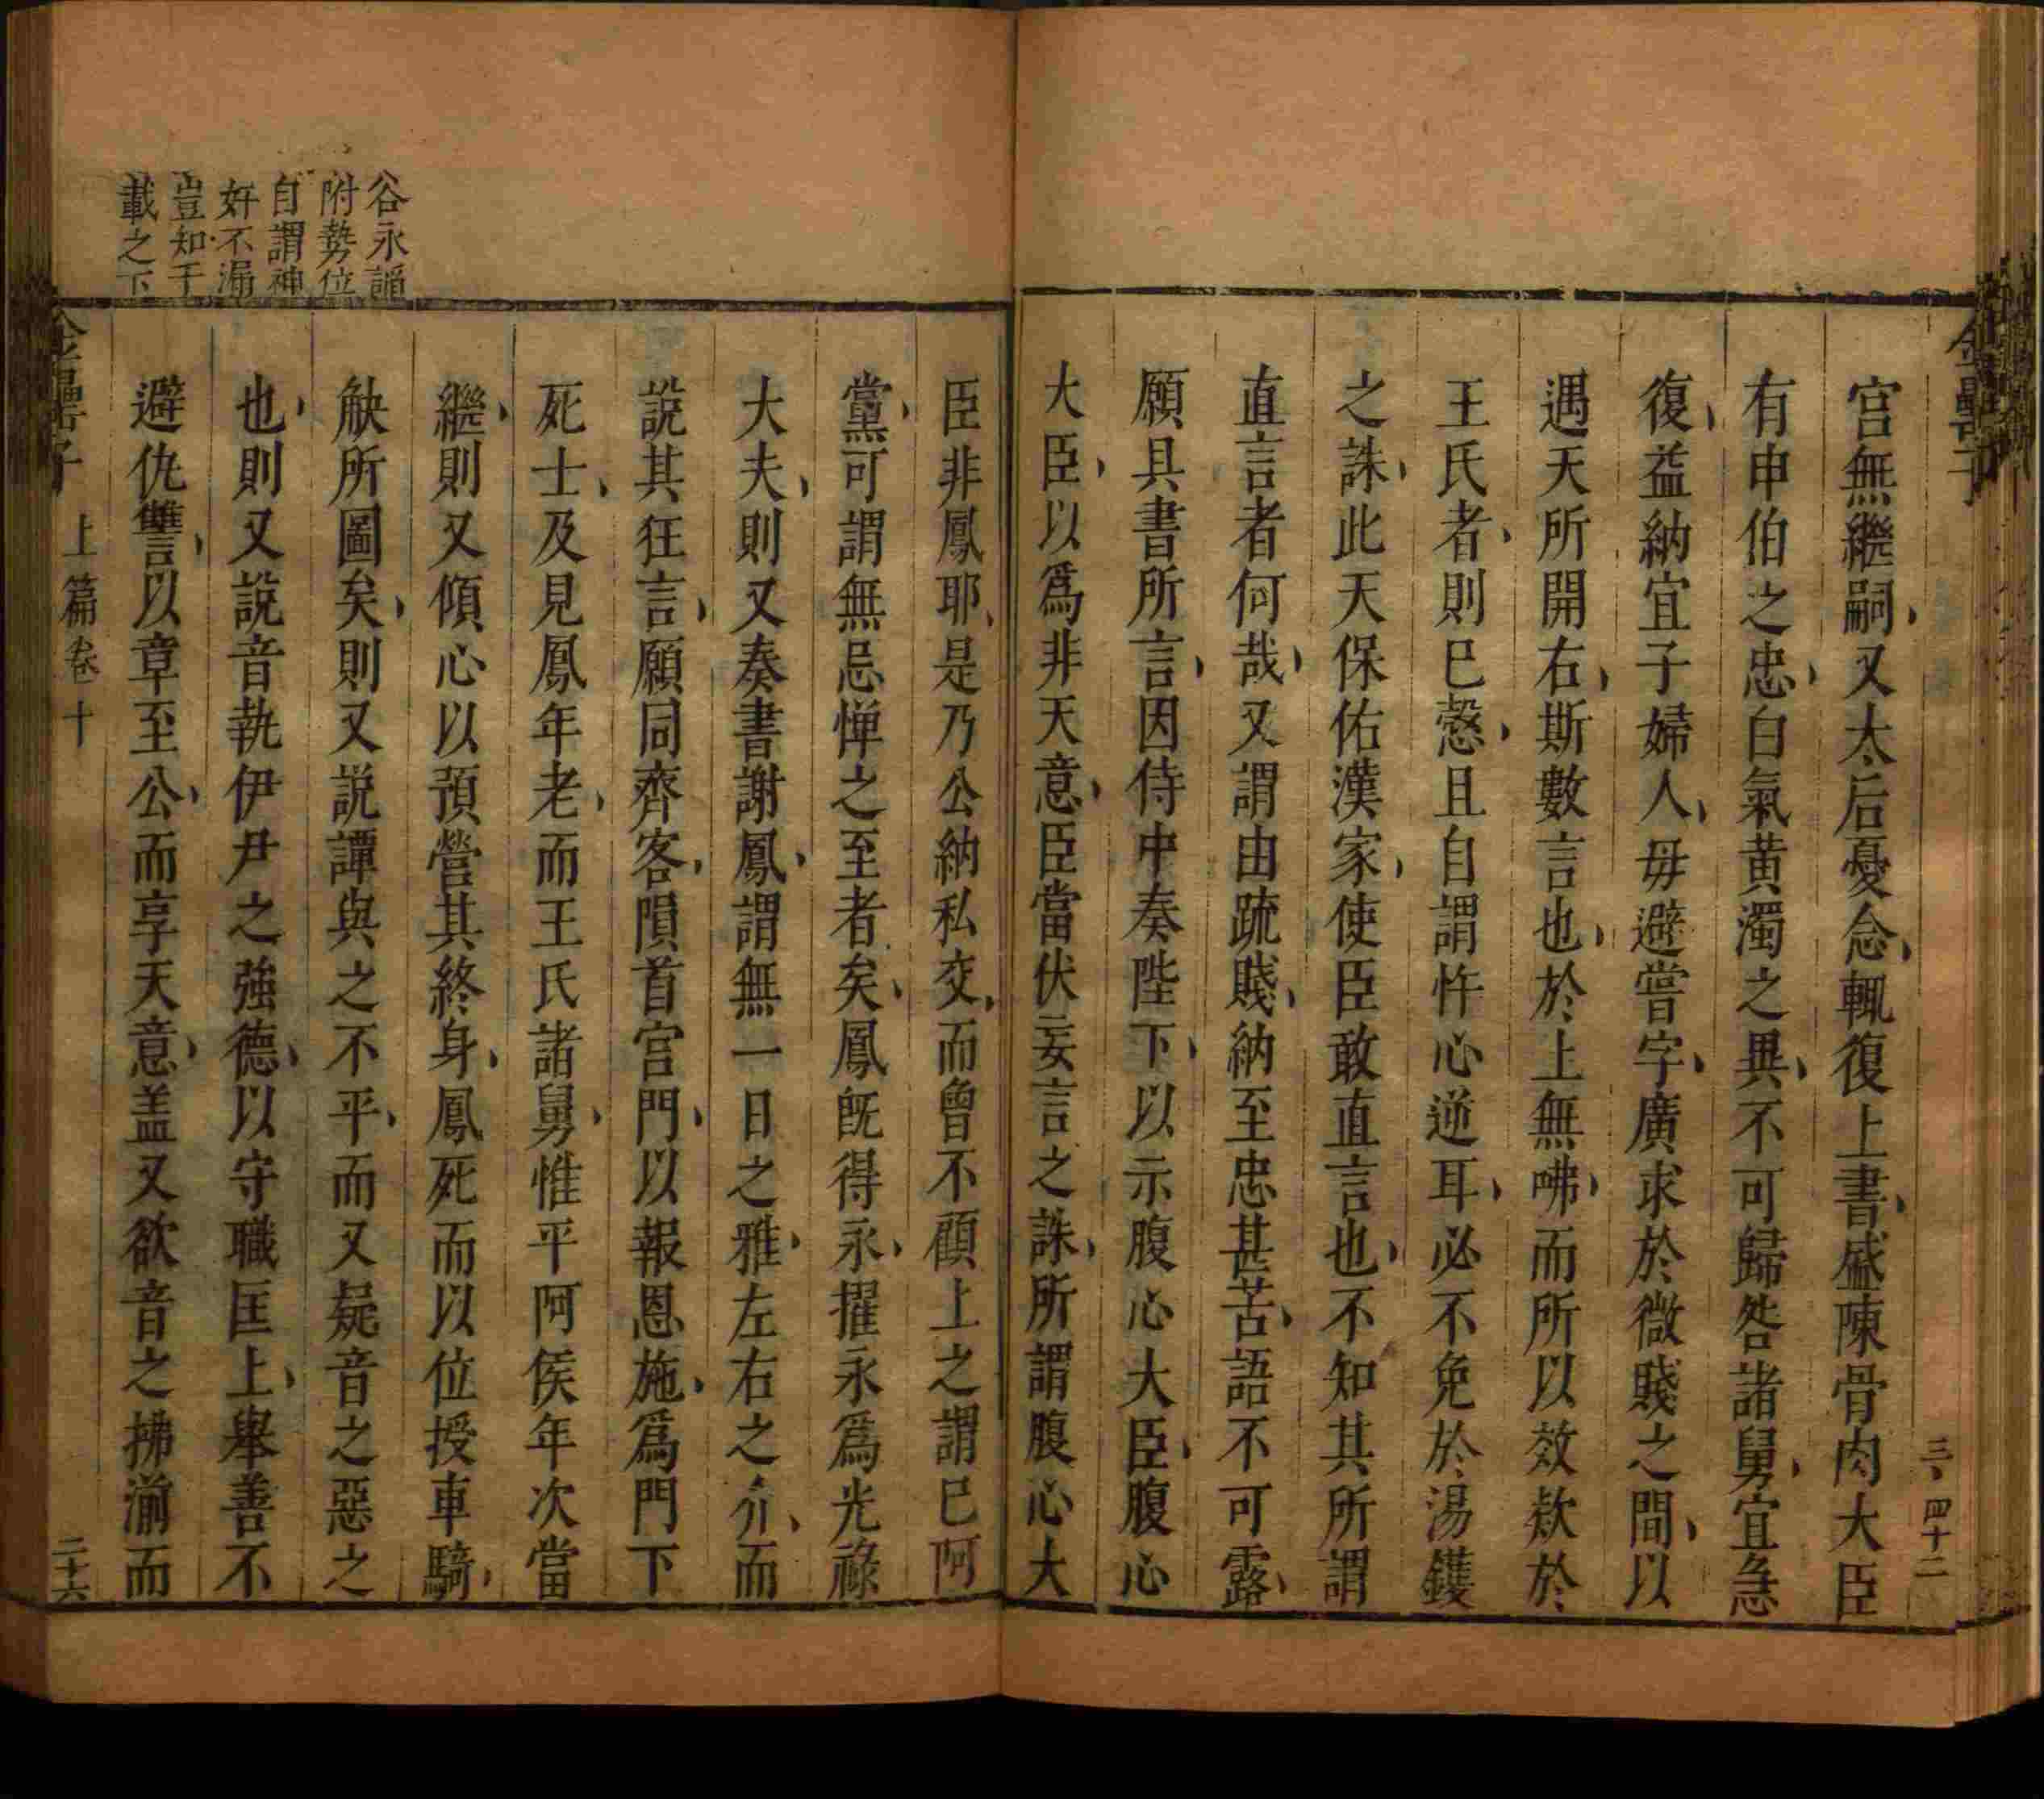 宫無繼嗣又太后憂念輒復上書盛陳骨肉大臣
有申伯之忠白氣黄濁之異不可歸咎諸舅宜急
復益納宜子婦人毋避嘗字廣求於微賤之間以
遇天所開右斯數言也於上無咈而所以效欵於
王氏者則已慤且自謂忤心逆耳必不免於湯鑊
之誅此天保佑漢家使臣敢直言也不知其所謂
直言者何哉又謂由疏賤納至忠甚苦語不可露
願具書所言因侍中奏陛下以示腹心大臣腹心
大臣以爲非天意臣當伏妄言之誅所謂腹心大
臣非鳳耶是乃公納私交而曾不顧上之謂已阿
黨可謂無忌憚之至者矣鳳旣得永擢永爲光祿
大夫則又奏書謝鳳謂無一日之雅左右之介而
說其狂言願同齊客隕首宫門以報恩施爲門下
死士及見鳳年老而王氏諸舅惟平阿侯年次當
繼則又傾心以預營其終身鳳死而以位授車騎
觖所圖矣則又説譚與之不平而又疑音之惡之
也則又說音執伊尹之強德以守職匡上舉善不
避仇讐以章至公而享天意盖又欲音之拂湔而
谷永謟
附勢位
自謂神
奸不漏
豈知千
載之下
金罍子
上篇卷十
二十六
金罍子
三、四十二